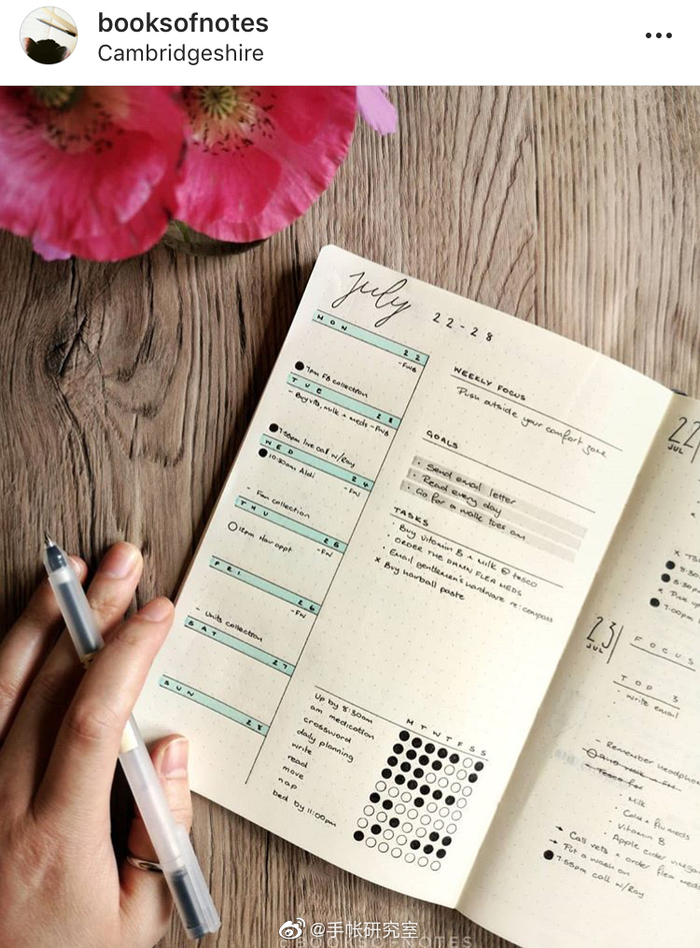 booksofnotes
Cambridgeshire
July 22-28
MON 22
-FWB
7pm FB collection
TUE 23
- Buy vits, milk + meds -FWB
7:55pm live call w/Ray
WED 24
10:30am Aldi
-FW
- Fan collection
THU 25
-FW
12pm Hair appt
FRI 26
-FW
- Units collection
SAT 27
SUN 28
WEEKLY FOCUS
· Push outside your comfort zone
GOALS
· Send email letter
· Read every day
· Go for a walk
TASKS
· Buy vitamin B + milk @ tesco
· ORDER THE DAMN FLEA MEDS
· Email gentlemen's hardware re: compass
x Buy hairball paste
M T W T F S S
Up by 8:30am
am medication
crossword
daily planning
write
read
move
nap
bed by 11:00pm
22
JUL
8:30
x Pick up
7:00pm
23
JUL
FOCUS
TOP 3
· write email
- Remember headphon
· Milk
· Cold + flu meds
· Vitamin B
· Apple cider vinegar
→ Call vets + order flea meds
→ Put a wash on
7:55pm call w/Ray
@手帐研究室
BOOKSOFNOTES